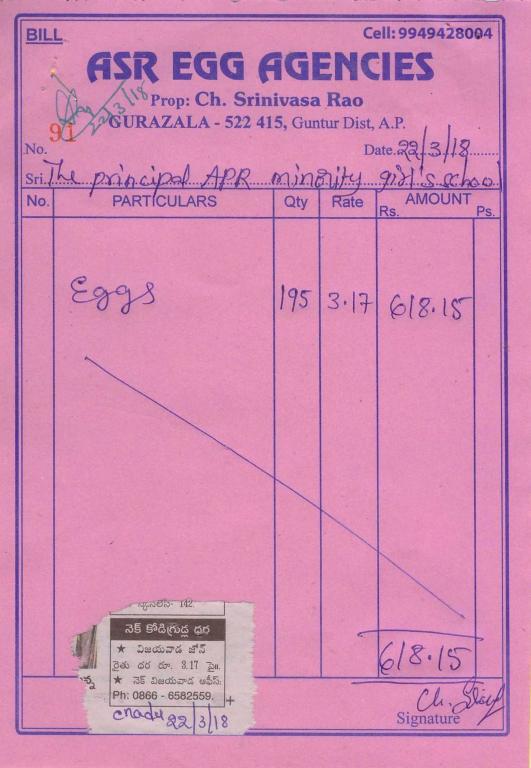 BILL Cell: 9949428004
ASR EGG AGENCIES
Prop: Ch. Srinivasa Rao
22/3/18
GURAZALA - 522 415, Guntur Dist, A.P.
No. 91 Date 22/3/18
Sri. The principal APR minority girl's school
No. PARTICULARS Qty Rate AMOUNT
Rs. Ps.
Eggs 195 3.17 618.15
618.15
142
నెక్ కోడిగ్రుడ్ల ధర
★ విజయవాడ జోన్
రైతు ధర రూ. 3.17 పై॥
★ నెక్ విజయవాడ ఆఫీస్:
Ph: 0866 - 6582559.
22/3/18
Signature